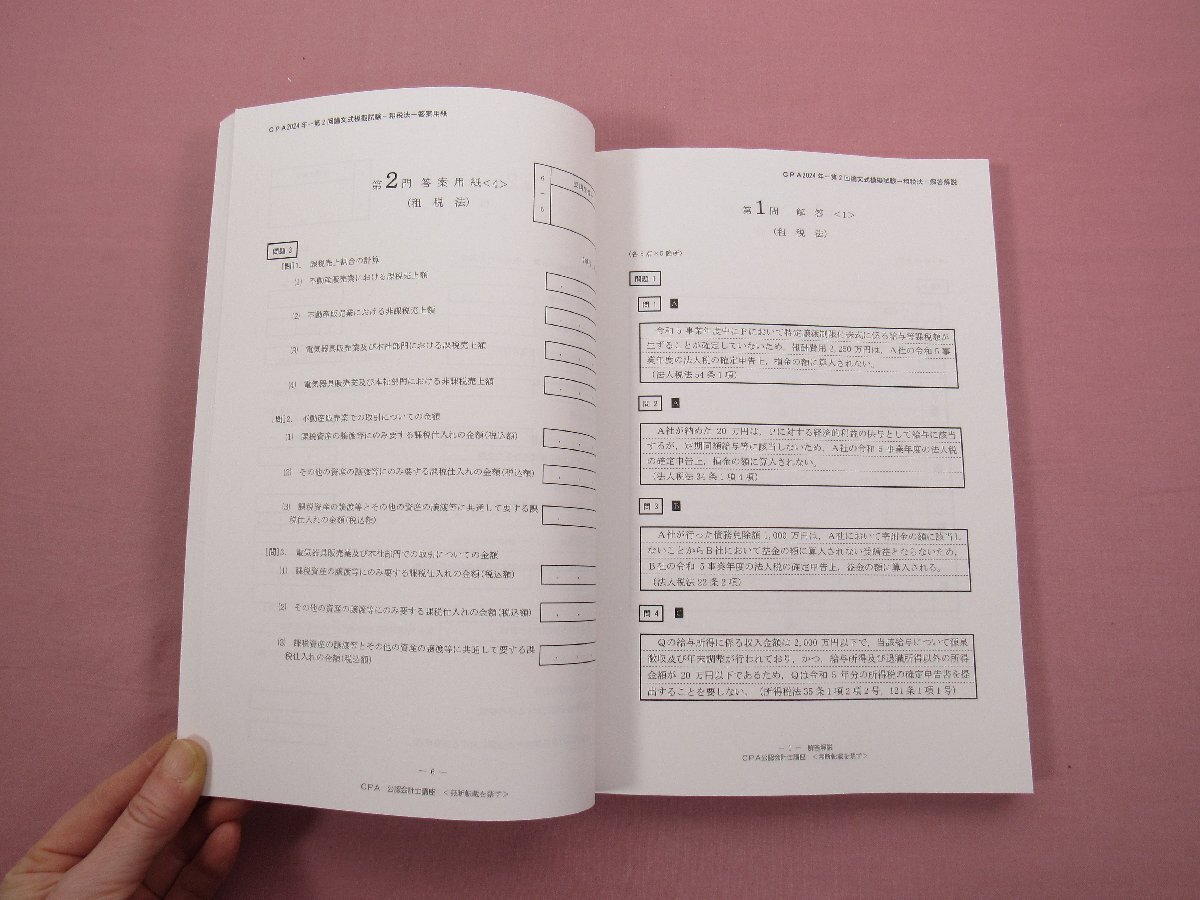 CPA2024年-第2回論文式模擬試験-租税法-答案用紙
第2問 答案用紙<4>
(租税法)
6
-
6
問題 3
[問]1. 課税売上割合の計算
(1) 不動産販売業における課税売上額
(2) 不動産販売業における非課税売上額
(3) 電気器具販売業及び本社部門における課税売上額
(4) 電気器具販売業及び本社部門における非課税売上額
[問]2. 不動産販売業での取引についての金額
(1) 課税資産の譲渡等にのみ要する課税仕入れの金額(税込額)
(2) その他の資産の譲渡等にのみ要する課税仕入れの金額(税込額)
(3) 課税資産の譲渡等とその他の資産の譲渡等に共通して要する課
税仕入れの金額(税込額)
[問]3. 電気器具販売業及び本社部門での取引についての金額
(1) 課税資産の譲渡等にのみ要する課税仕入れの金額(税込額)
(2) その他の資産の譲渡等にのみ要する課税仕入れの金額(税込額)
(3) 課税資産の譲渡等とその他の資産の譲渡等に共通して要する課
税仕入れの金額(税込額)
- 6 -
CPA 公認会計士講座 <無断転載を禁ず>
CPA2024年-第2回論文式模擬試験-租税法-解答解説
第1問 解答<1>
(租税法)
問題 1
問1 A
令和5事業年度中にPにおいて特定譲渡制限付株式に係る給与等課税額が
生ずることが確定していないため、報酬費用2,250万円は、A社の令和5事
業年度の法人税の確定申告上、損金の額に算入されない。
(法人税法54条1項)
問2 A
A社が納めた20万円は、Pに対する経済的利益の供与として給与に該当
するが、定期同額給与等に該当しないため、A社の令和5事業年度の法人税
の確定申告上、損金の額に算入されない。
(法人税法34条1項4項)
問3 B
A社が行った債務免除額1,000万円は、A社において寄附金の額に該当し
ないことからB社において益金の額に算入されない受贈益とならないため、
B社の令和5事業年度の法人税の確定申告上、益金の額に算入される。
(法人税法22条2項)
問4 C
Qの給与所得に係る収入金額は2,000万円以下で、当該給与について源泉
徴収及び年末調整が行われており、かつ、給与所得及び退職所得以外の所得
金額が20万円以下であるため、Qは令和5年分の所得税の確定申告書を提
出することを要しない。(所得税法35条1項2項2号、121条1項1号)
- 1 - 解答解説
CPA公認会計士講座 <無断転載を禁ず>